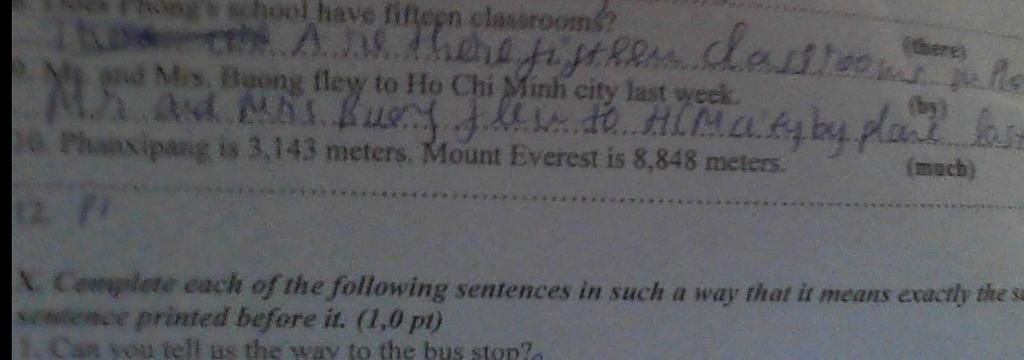 Phong's school have fifteen classrooms?
Are there fifteen classrooms in (there)
9. Mr and Mrs. Buong flew to Ho Chi Minh city last week.
Mr and Mrs Buong flew to HCM city by plane last (by)
10. Phanxipang is 3,143 meters. Mount Everest is 8,848 meters.
(much)
12.
X. Complete each of the following sentences in such a way that it means exactly the
sentence printed before it. (1,0 pt)
1. Can you tell us the way to the bus stop?